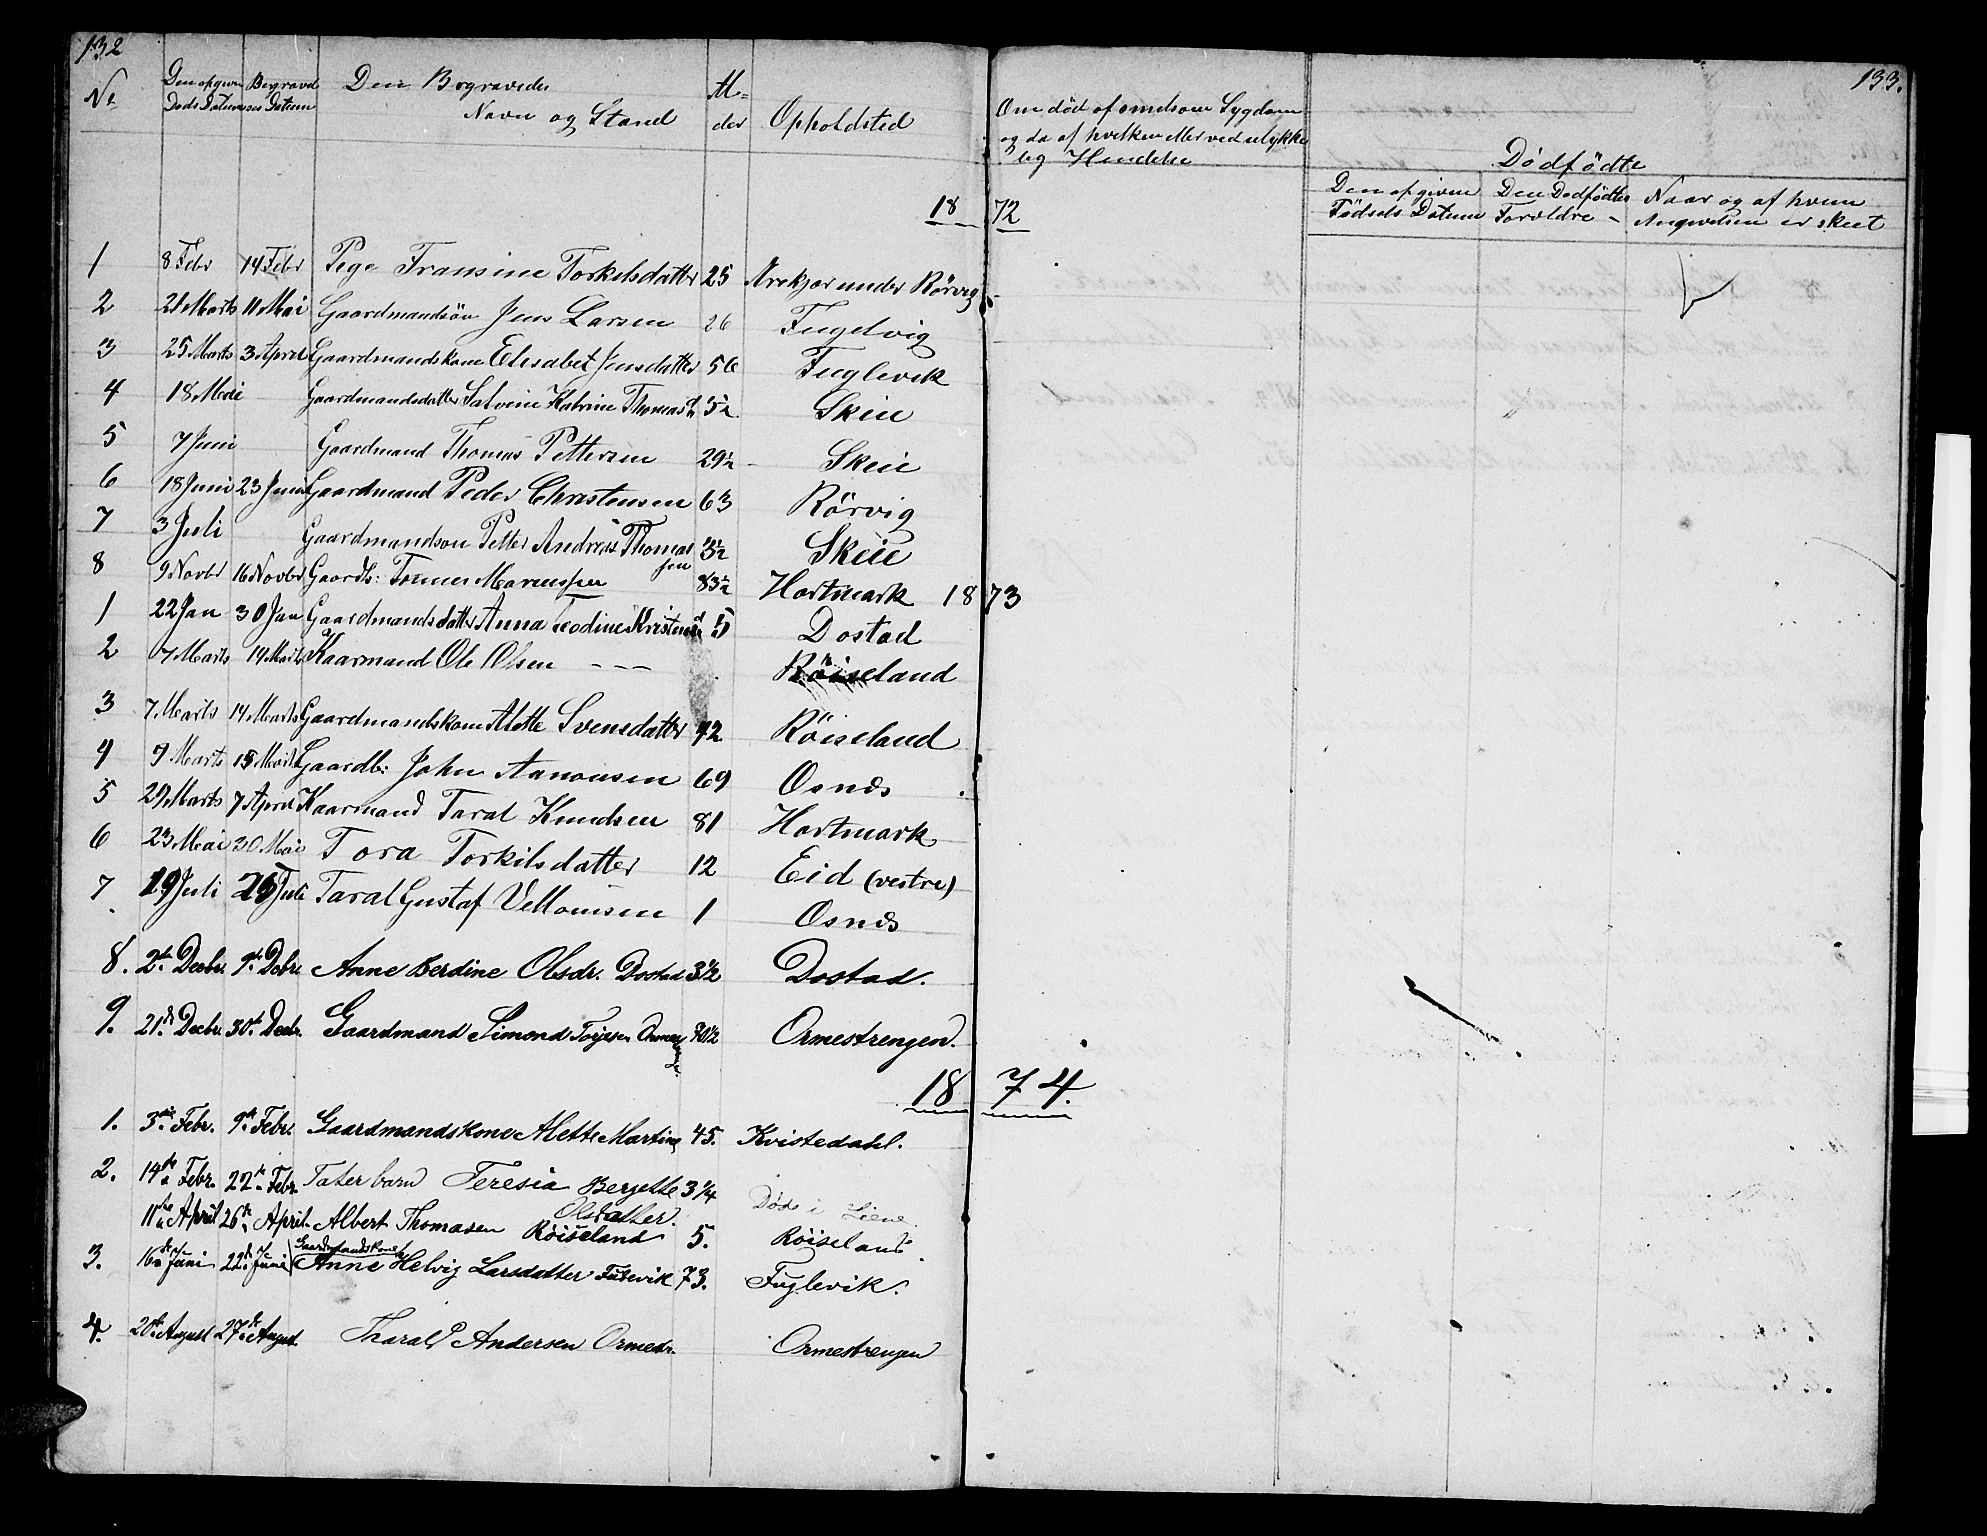 132
133.
No Den opgivne Døds Datum Begravelses Datum Den Begravedes Navn og Stand Alder Opholdsted Om død af smitsom Sygdom og da af hvilken eller ved ulykkelig Hendelse
Dødfødte
Den opgivne Fødsels Datum Den Dødfødtes Forældre - Naar og af hvem Angivelsen er skeet
18 72
1 8 Febr 14 Febr Pige Fransine Torkilsdatter 25 Arekjær under Rörvig
2 21 Marts 11 Mai Gaardmandsön Jens Larsen 26 Fugelvig
3 25 Marts 3 April Gaardmandskone Elisabet Jensdatter 56 Fuglevik
4 18 Mai Gaardmandsdatter Salveine Katrine Thomasd 5½ Skeie
5 7 Juni Gaardmand Thomas Pettersen 29½ Skeie
6 18 Juni 23 Juni Gaardmand Peder Christensen 63 Rörvig
7 3 Juli Gaardmandson Petter Andreas Thomassen 3½ Skeie
8 9 Novbr 16 Novbr Gaardb: Tønnes Marcussen 83½ Hortmark
18 73
1 22 Jan 30 Jan Gaardmandsdatter Anna Teodine Kristensd 5 Dostad
2 7 Marts 14 Marts Kaarmand Ole Olsen - - - Röiseland
3 7 Marts 14 Marts Gaardmandskone Alette Svensdatter 42 Röiseland
4 7 Marts 15 Marts Gaardb: John Aanonsen 69 Osnes
5 29 Marts 7 April Kaarmand Taral Knudsen 81 Hortmark
6 23 Mai 30 Mai Tora Torkilsdatter 12 Eid (vestre)
7 19 Juli 26 Juli Taral Gustaf Vellomsen 1 Osnes
8. 2de Decbr. 9de Decbr. Anne Berdine Olsdr. Dostad 3½ Dostad.
9. 21de Decbr. 30te Decbr. Gaardmand Simond Torjesen 70½ Ormestrengen.
18 74.
1. 3die Febr. 9de Febr. Gaardmandskone Alette Martine 45. Kvistedahl.
2. 14de Febr. 22de Febr. Taterbarn Teresia Bergette Olsdatter. 3¼ Døde i Liene.
11te April 26de April. Albert Thomasen Röiseland 5. Röiseland.
3. 16de Juni 22de Juni Gaardmandskone Anne Helvig Larsdatter 73. Fuglevik.
4. 20de August 27de August. Tharald Andersen Ormestr. Ormestrengen